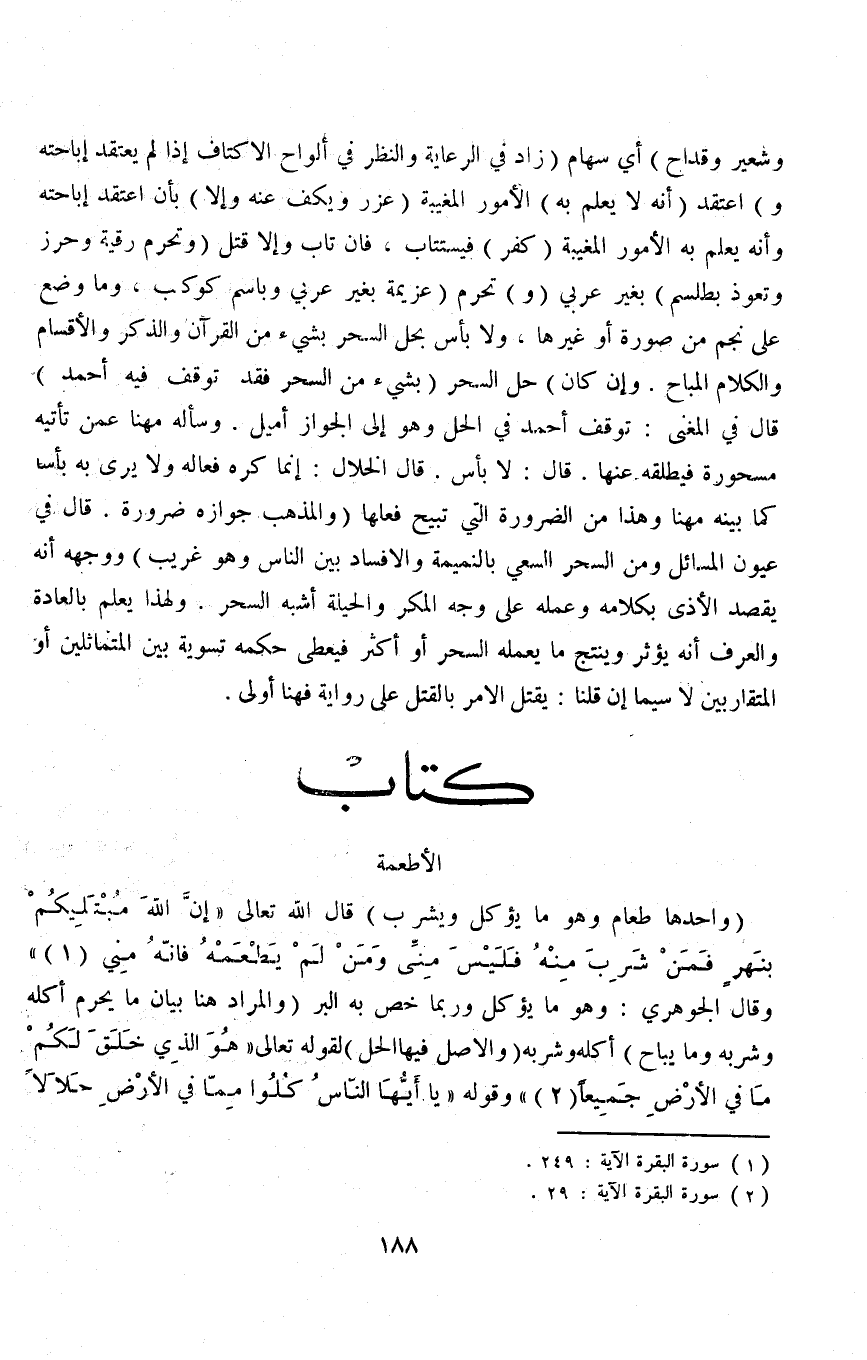 وشعير وقداح ) أي سهام ( زاد في الرعاية والنظر في ألواح الاكتاف إذا لم يعتقد إباحته
و ) اعتقد ( أنه لا يعلم به ) الأمور المغيبة ( عزر ويكف عنه وإلا ) بأن اعتقد إباحته
وأنه يعلم به الأمور المغيبة ( كفر ) فيستتاب ، فان تاب وإلا قتل ( وتحرم رقية وحرز
وتعوذ بطلسم ) بغير عربي ( و ) تحرم ( عزيمة بغير عربي وباسم كوكب ، وما وضع
على نجم من صورة أو غيرها ، ولا بأس بحل السحر بشيء من القرآن والذكر والأقسام
والكلام المباح . وإن كان ) حل السحر ( بشيء من السحر فقد توقف فيه أحمد )
قال في المغنى : توقف أحمد في الحل وهو إلى الجواز أميل . وسأله مهنا عمن تأتيه
مسحورة فيطلقه عنها . قال : لا بأس . قال الخلال : إنما كره فعاله ولا يرى به بأسا
كما بينه مهنا وهذا من الضرورة التي تبيح فعلها ( والمذهب جوازه ضرورة . قال في
عيون المسائل ومن السحر السعي بالنميمة والافساد بين الناس وهو غريب ) ووجهه أنه
يقصد الأذى بكلامه وعمله على وجه المكر والحيلة أشبه السحر . ولهذا يعلم بالعادة
والعرف أنه يؤثر وينتج ما يعمله السحر أو أكثر فيعطى حكمه تسوية بين المتماثلين أو
المتقاربين لا سيما إن قلنا : يقتل الامر بالقتل على رواية فهنا أولى .
كتاب
الأطعمة
( واحدها طعام وهو ما يؤكل ويشرب ) قال الله تعالى « إنَّ اللهَ مُبْتَلِيكُمْ
بنَهَرٍ فَمَنْ شَرِبَ مِنْهُ فَلَيْسَ مِنِّى وَمَنْ لَمْ يَطْعَمْهُ فانّهُ مِنِي ( ١ ) »
وقال الجوهري : وهو ما يؤكل وربما خص به البر ( والمراد هنا بيان ما يحرم أكله
وشربه وما يباح ) أكله وشربه ( والاصل فيها الحل ) لقوله تعالى « هُوَ الذي خَلَقَ لَكُمْ
مَا في الأرْضِ جَمِيعاً ( ٢ ) » وقوله « يا أيُّهَا النّاسُ كُلُوا مِمّا في الأرْضِ حَلاَلاً
( ١ ) سورة البقرة الآية : ٢٤٩ .
( ٢ ) سورة البقرة الآية : ٢٩ .
١٨٨